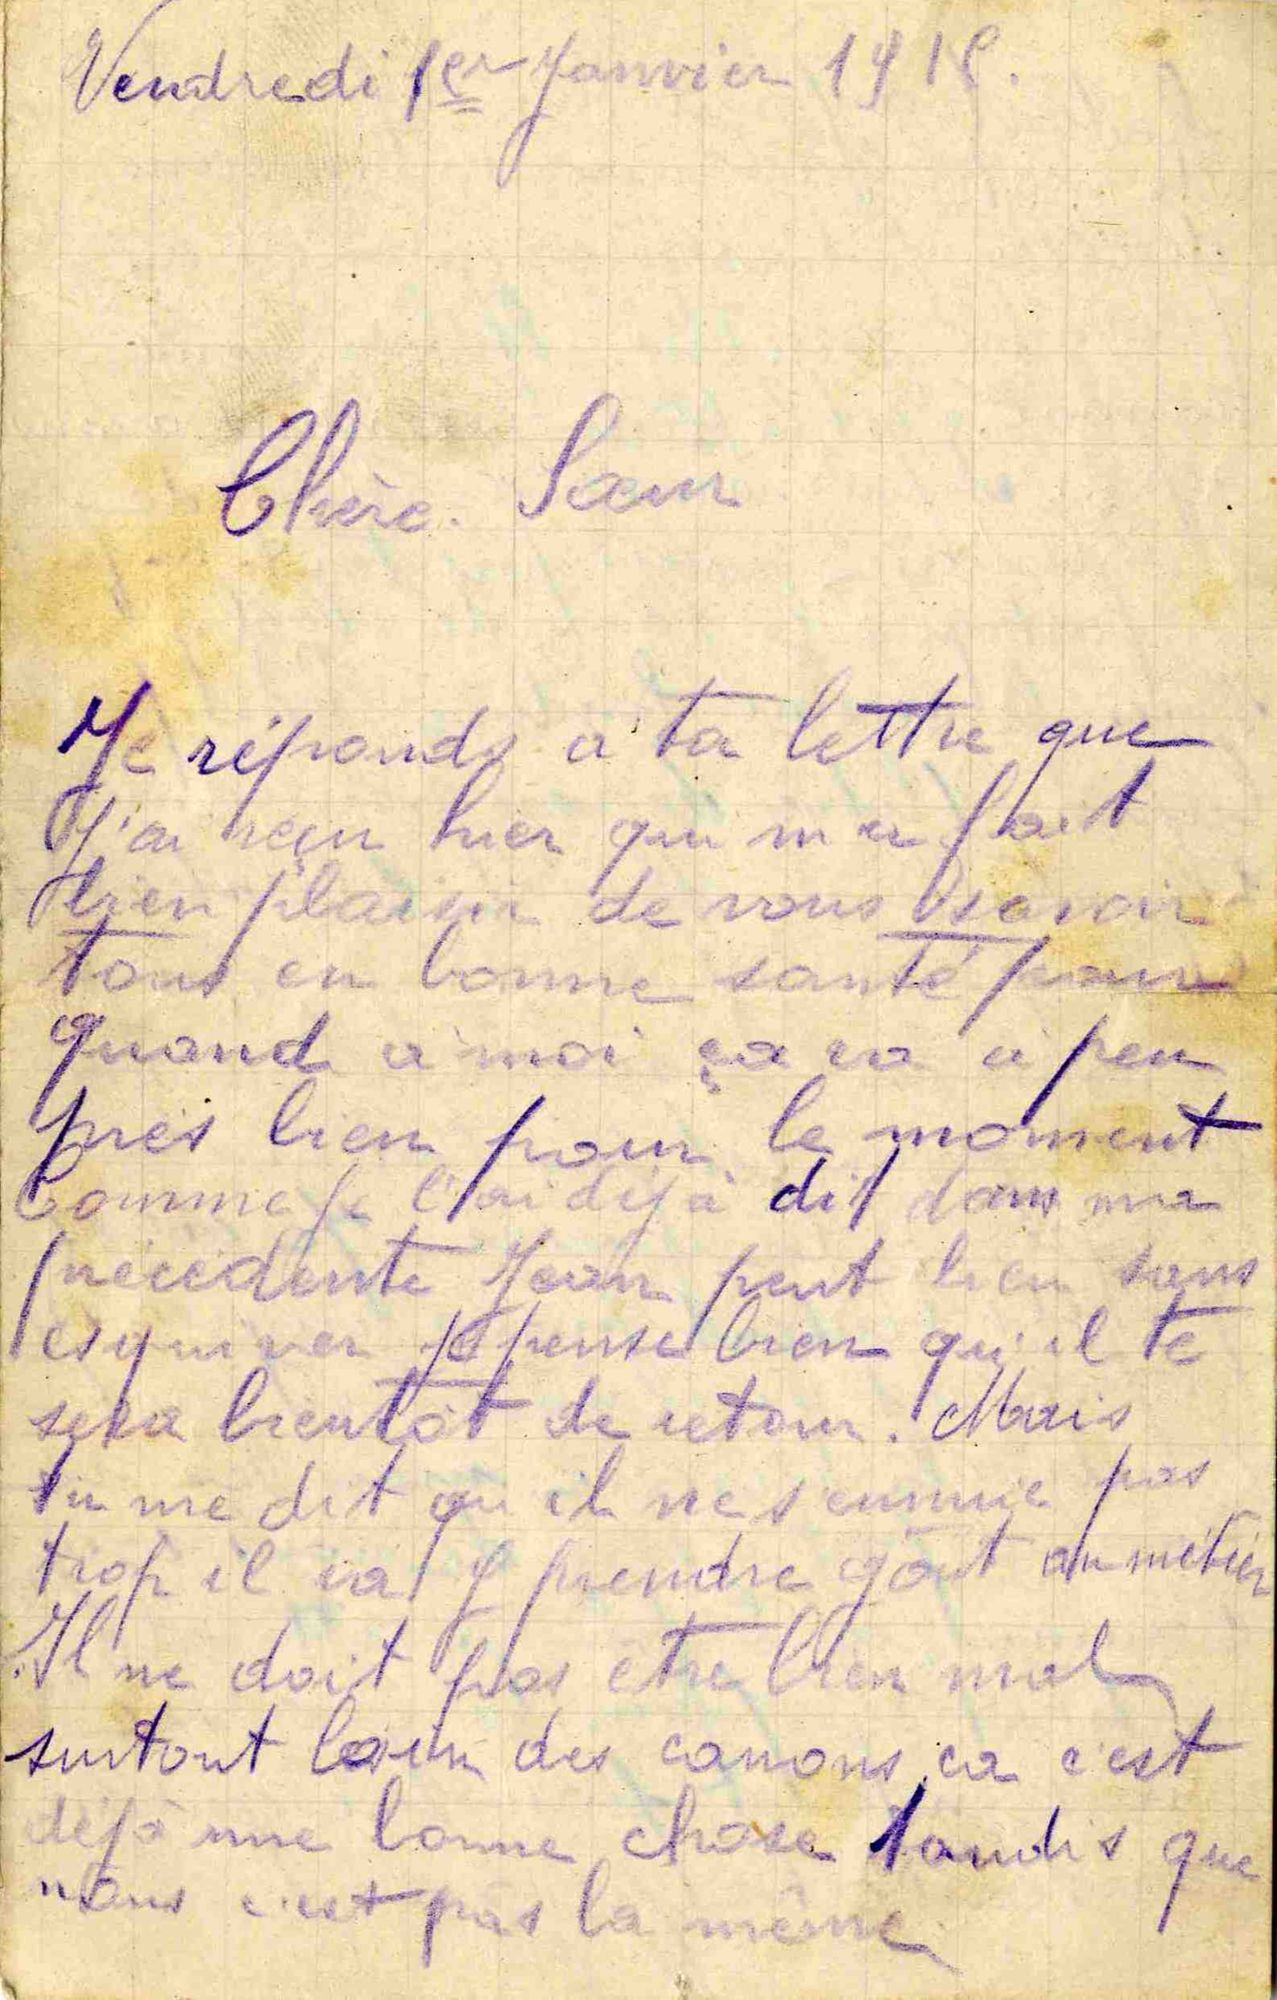 Vendredi 1er Janvier 1915.
Chère. Sœur
Je réponds à ta lettre que
j'ai reçu hier qui m'a fait
bien plaisir de vous savoir
tous en bonne santé pour
quand à moi ça va à peu
près bien pour le moment
Comme je l'ai déjà dit dans ma
précédente Jean peut bien sans
esquiver je pense bien qu'il te
sera bientôt de retour. Mais
tu me dit qu'il ne s'ennuie pas
trop il va y prendre goût au métier
Il ne doit pas être bien mal
surtout loin des canons ça c'est
déjà une bonne chose tandis que
nous c'est pas la même